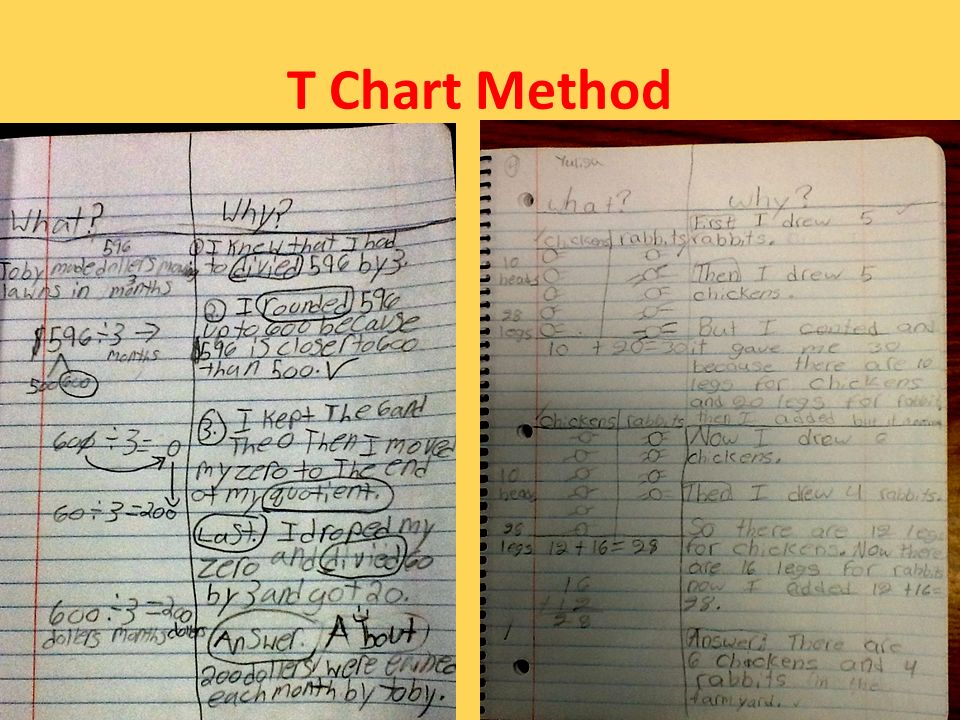 T Chart Method
What?
596
Toby made dollers mowing
lawns in 3 months
$596÷3 →
months
500 600
600÷3= 0
60÷3=200
600÷3=200
dollers months dollers
Why?
① I knew that I had
to divied 596 by 3.
② I rounded 596
up to 600 because
$596 is closer to 600
than 500. ✓
3. I kept The 6 and
The 0 Then I moved
my zero to The end
of my quotient.
Last. I droped my
zero and divied 60
by 3 and got 20.
Answer. A bout
200 dollers were erined
each month by toby.
Yulisa
what?
chickens rabbits
10
heads
28
legs
10 + 20=30
chickens rabbits
10
heads
28
legs 12+16=28
16
+12
28
why?
First I drew 5
rabbits.
Then I drew 5
chickens.
But I conted and
it gave me 30
because there are 10
legs for chickens
and 20 legs for rabbits
then I added but it
Now I drew 6
chickens.
Then I drew 4 rabbits.
So there are 12 legs
for chickens. Now there
are 16 legs for rabbits
now I added 12+16=
28.
Answer! There are
6 chockens and 4
rabbits in the
farmyard.